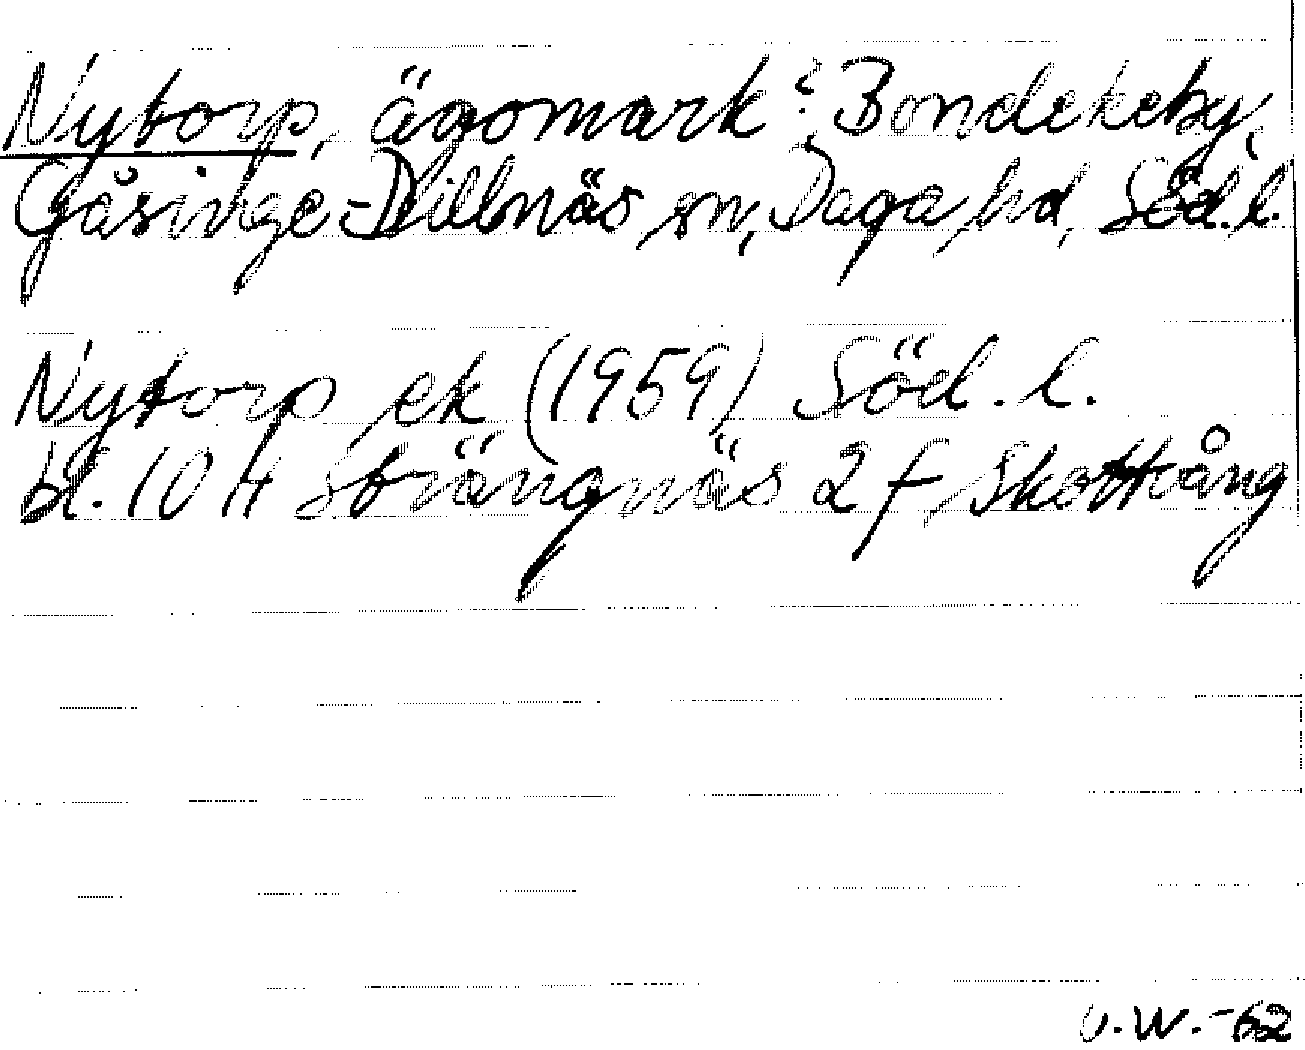 Nytorp, ägomark: Bondekeby,
Gåsinge-Dillnäs sn, Daga hd, Söd.l.
Nytorp ek (1959) Söd.l.
bl. 10 H Strängnäs 2f Skottvång
U.W.-62